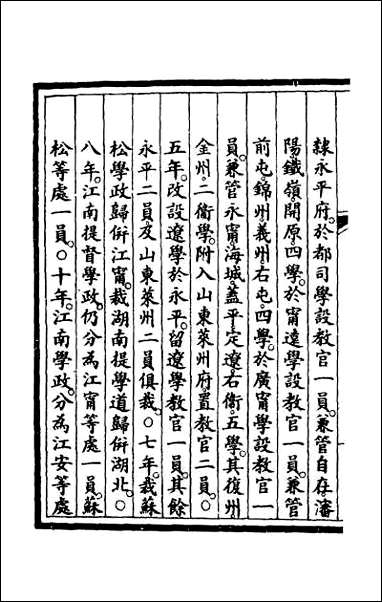 隸永平府。於都司學設教官一員。兼管自在瀋
陽鐵嶺。開原。四學。於甯遠學設教官一員。兼管
前屯。錦州義州右屯。四學。於廣甯學設教官一
員。兼管永甯海城。蓋平。定遼。右衞。五學。其復州
金州。二衞學。附入山東萊州府。置教官二員。○
五年。改設遼學於永平。留遼學教官一員。其餘
永平二員。及山東萊州二員俱裁。○七年。裁蘇
松學政。歸併江甯。裁湖南提學道歸併湖北。○
八年。江南提督學政。仍分為江甯等處一員。蘇
松等處一員。○十年。江南學政。分為江安等處